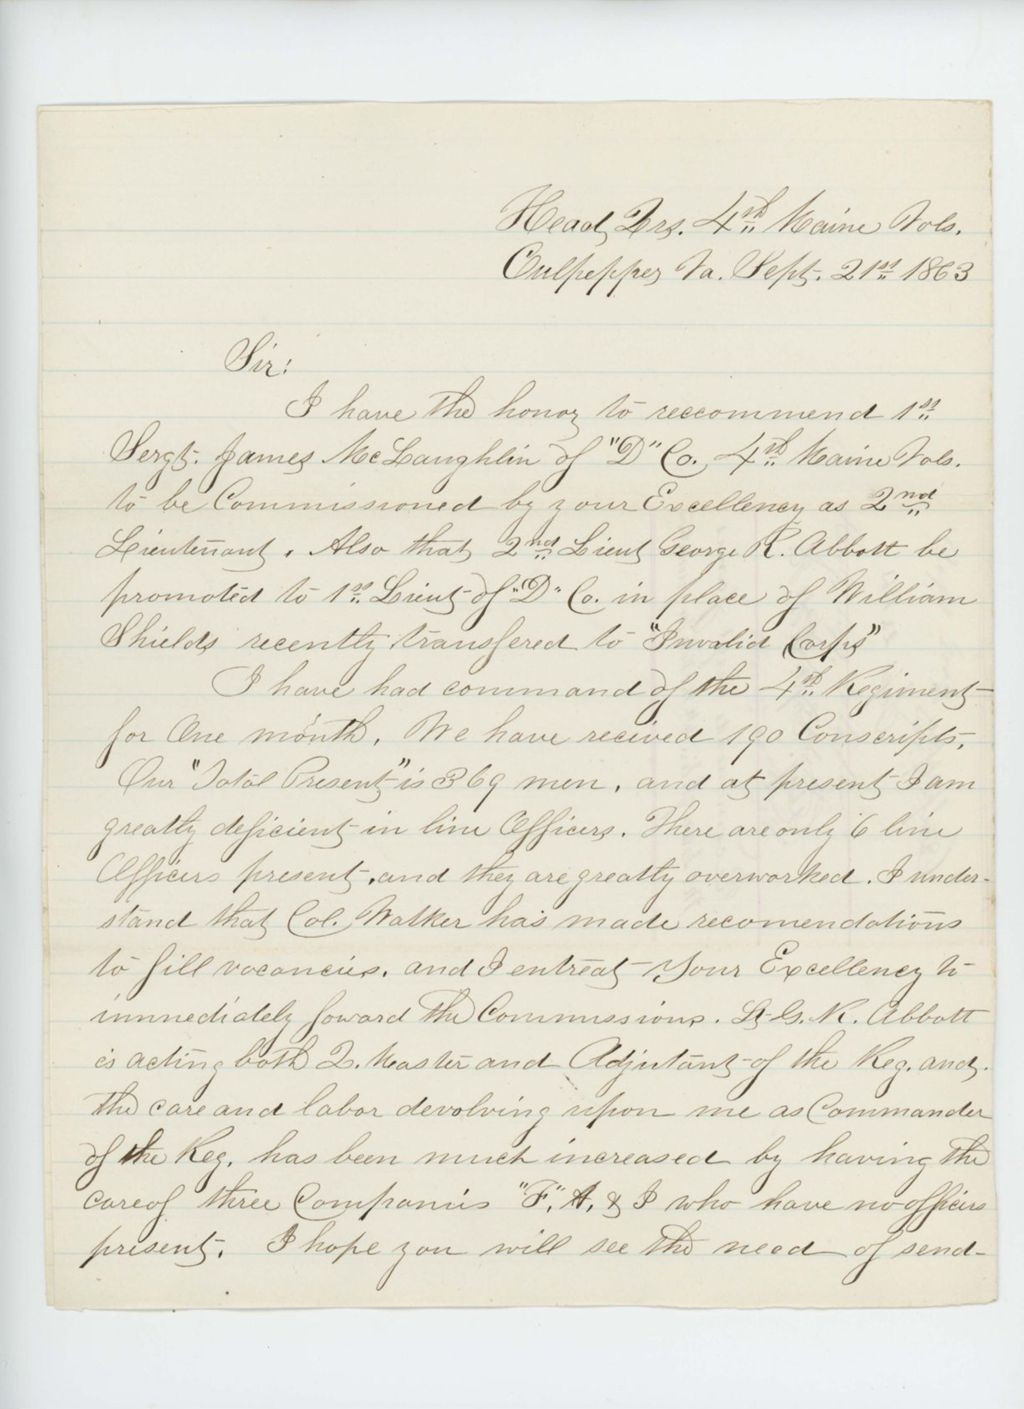 Head, Qrs. 4th Maine Vols.
Culpepper, Va. Sept. 21st 1863
Sir:
I have the honor to reccommend 1st
Sergt. James McLaughlin of "D" Co. 4th Maine Vols.
to be Commissioned by your Excellency as 2nd
Lieutenant. Also that 2nd Lieut George R. Abbott be
promoted to 1st Lieut of "D" Co. in place of William
Shields recently transfered to "Invalid Corps"
I have had command of the 4th Regiment
for One month. We have recived 190 Conscripts,
Our "Total Present" is 369 men, and at present I am
greatly deficient in line Officers. There are only 6 line
Officers present, and they are greatly overworked. I under-
stand that Col. Walker has made recomendations
to fill vacancies, and I entreat Your Excellency to
immediately foward the Commissions. Lt G. R. Abbott
is acting both Q. Master and Adjutant of the Reg. and
the care and labor devolving upon me as Commander
of the Reg. has been much increased by having the
care of three Companies "F", A, & I who have no officers
present. I hope you will see the need of send-